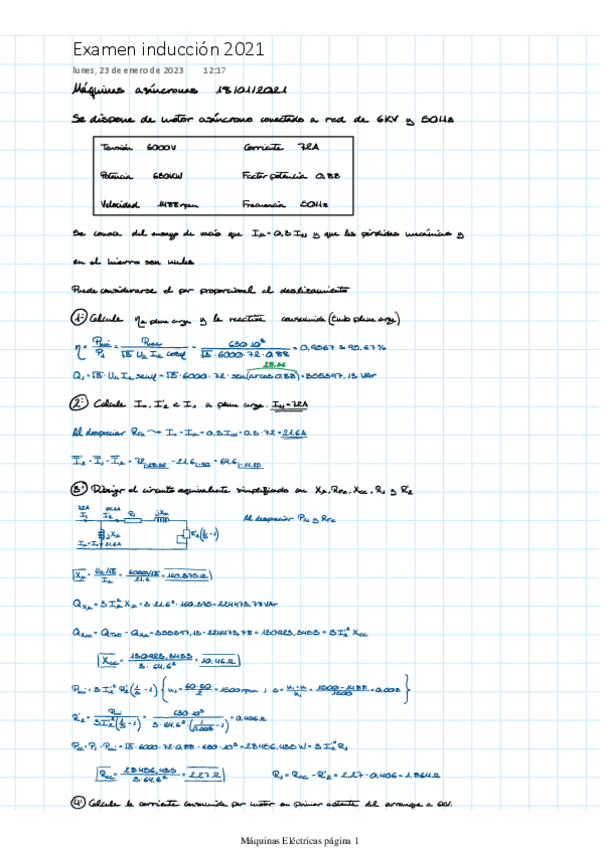 Examen inducción 2021
lunes, 23 de enero de 2023 12:17
Máquinas asíncronas 18/01/2021
Se dispone de motor asíncrono conectado a red de 6KV y 50Hz
Tensión 6000V Corriente 72A
Potencia 630KW Factor potencia 0,88
Velocidad 1488rpm Frecuencia 50Hz
Se conoce del ensayo de vacío que Iμ=0,3 IN y que las pérdidas mecánicas y
en el hierro son nulas
Puede considerarse el par proporcional al deslizamiento
1º Calcule η a plena carga y la reactiva consumida (tmb plena carga)
η = Pmi/P1 = Pmec/(√3 U2 I2 cosφ) = 630·10³/(√3·6000·72·0,88) = 0,9567 ≈ 95,67%
28,36
Q1=√3 U1 I1 senφ=√3·6000·72·sen(arcos 0,88)=355397,13 VAr
2º Calcule Io, I'2 e I1 a plena carga. IN=72A
Al despreciar RFe → Io=Iμ=0,3 IN=0,3·72=21,6A
3º Dibuje el circuito equivalente simplificado con Xμ, RFe, Xcc, R1 y R'2
72A 64,6A
I1 I'2 R1 jXcc
Al despreciar PFe y RFe
jXμ R'2(1/s-1)
Io=Iμ=21,6A
Xμ = (U1/√3)/Iμ = (6000/√3)/21,6 = 160,375Ω
QXμ=3Iμ²Xμ=3·21,6²·160,375=224473,78VAr
QXcc=QTot-QXμ=355397,13-224473,78=130923,3453=3I'2²Xcc
Xcc = 130923,3453/(3·64,6²) = 10,46Ω
Pmi=3I'2²R'2(1/s-1) {n1=60·50/2=1500rpm; s=(n1-n)/n1=(1500-1488)/1500=0,008}
R'2 = Pmi/(3I'2²(1/s-1)) = 630·10³/(3·64,6²·(1/0,008-1)) = 0,406Ω
Pcc=P1-Pmi=√3·6000·72·0,88-630·10³=28456,435W=3I'2²R1
Rcc = 28456,435/(3·64,6²) = 2,27Ω R1=Rcc-R'2=2,27-0,406=1,864Ω
4º Calcule la corriente consumida por motor en primer instante del arranque a 6kV.
Máquinas Eléctricas página 1